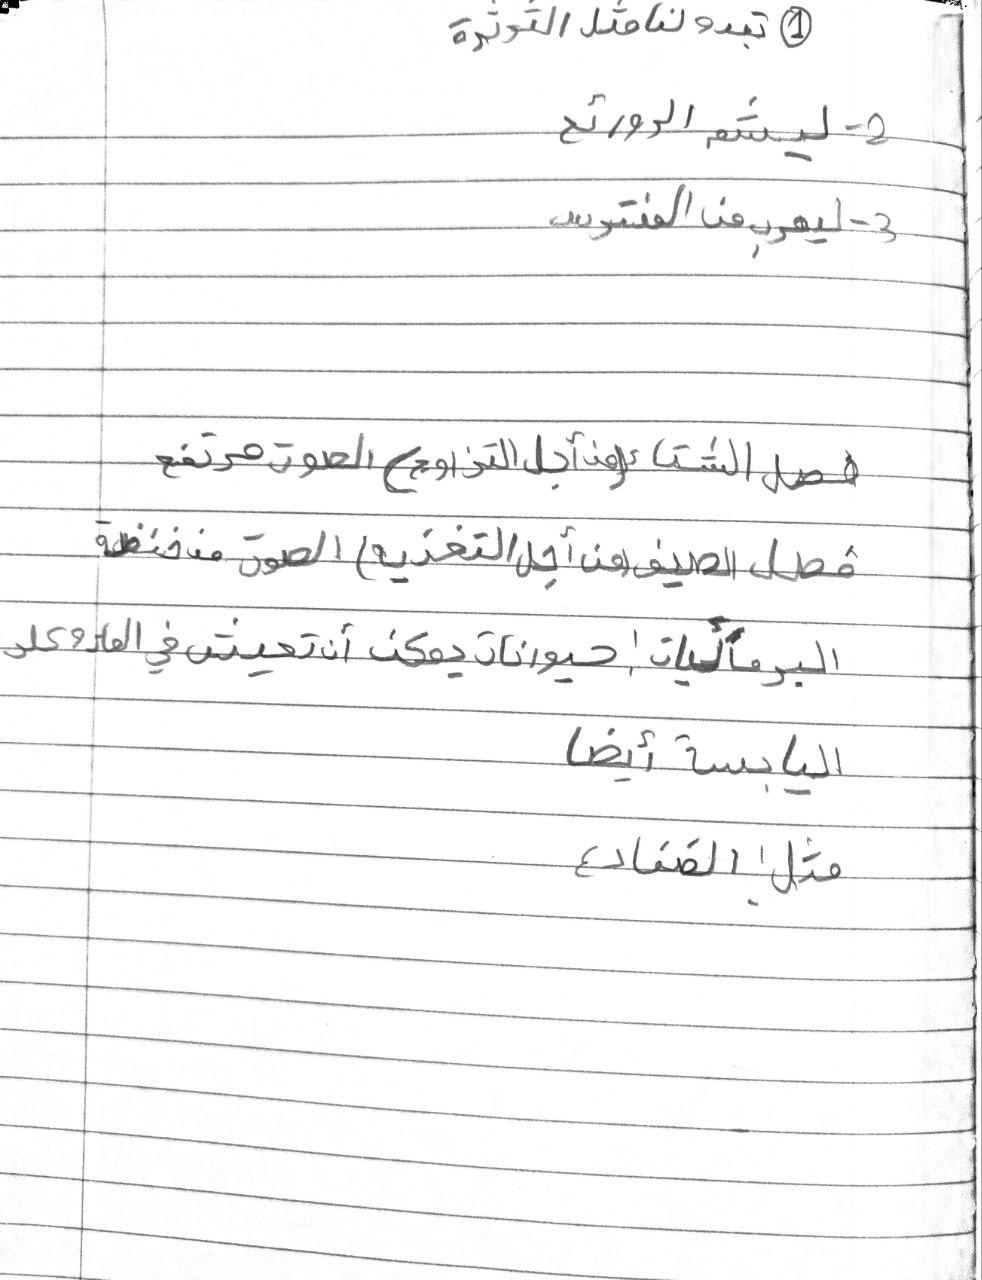 ① تبدو لنا مثل الثرثرة
2- ليشم الرورئح
3- ليهرب من المفترس
فصل الشتاء (من أجل التزاوج) الصوت مرتفع
فصل الصيف (من أجل التغذيه) الصوت منخفظة
البرمأئيات: حيوانات يمكن أن تعيش في الماء وعلى
اليابسة أيضا
مثل: الضفادع